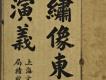 繡像東
演義
上海
局精